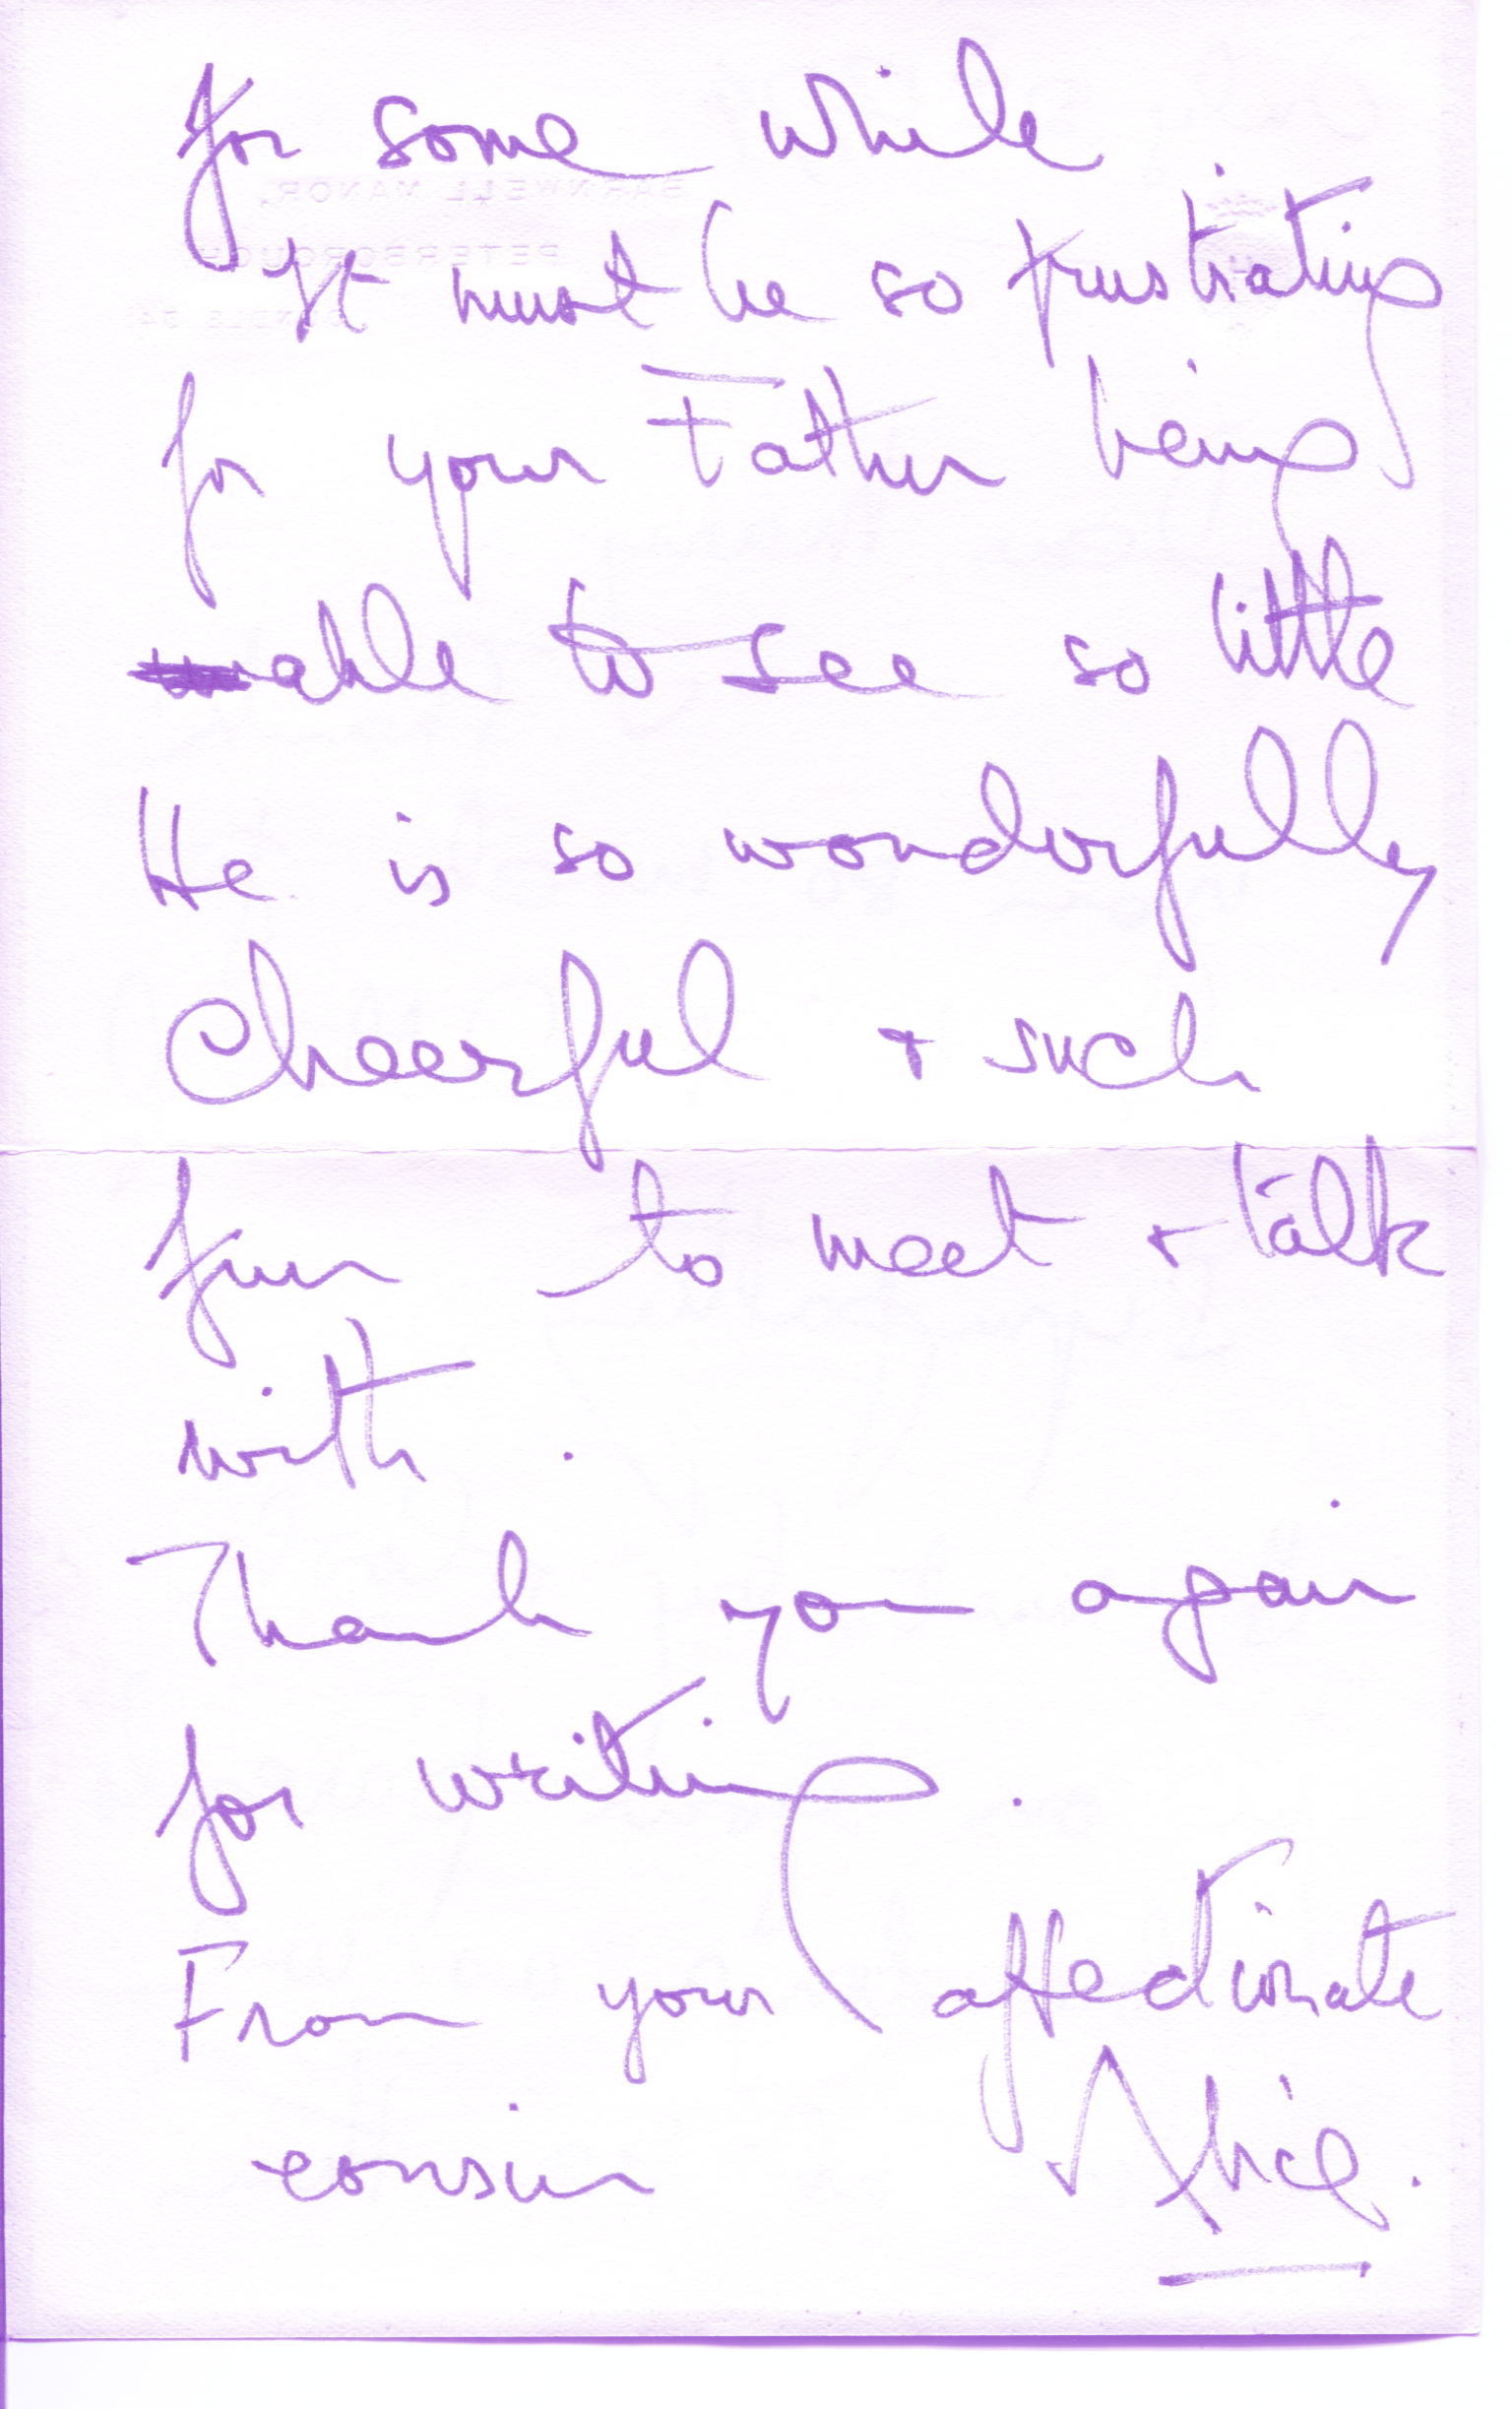 for some while.
BARNWELL MANOR,
PETERBOROUGH
It must be so frustrating
for your Father being
able to see so little
He is so wonderfully
cheerful + such
fun to meet + talk
with.
Thank you again
for writing.
From your affectionate
cousin Alice.